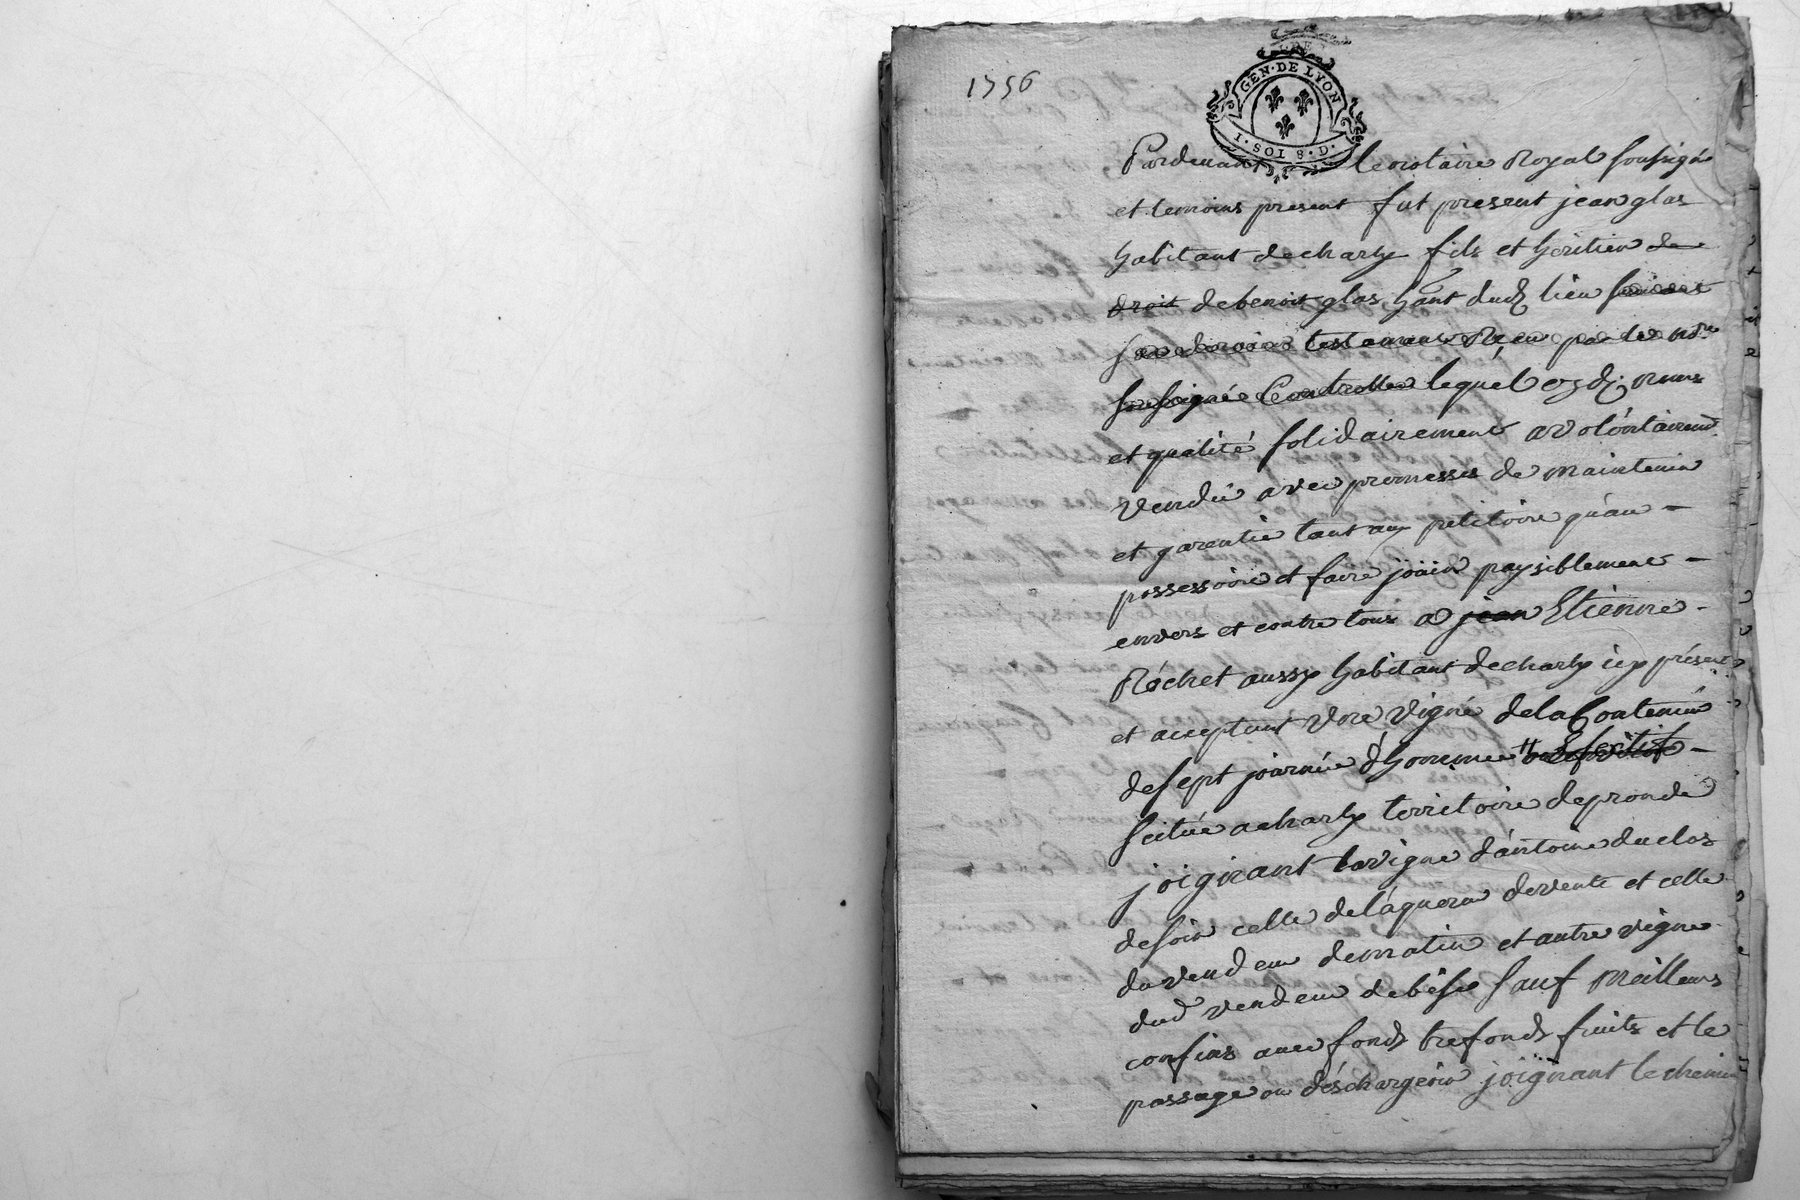 1756
GEN·DE LYON
I·SOL 8·D·
Pardevant le notaire Royal soussigné
et temoins present fut present jean glas
habitant de charly fils et héritier de
droit de benoit glas hant dud lieu suivant
son dernier testament Reçeu par le no.re
soussigné Controllé lequel esd. noms
et qualité solidairement a volóntairemt
vendu avec promesses de maintenir
et garentie tant au petitoire qu'au
possessoire et faire joüir paysiblement
envers et contre tous a jean Etienne
Róchet aussy habitant de charly icy présent
et acceptant une vigne de la Contenüe
de sept journée d'homme
scituée a charly territoire de pronde
joignant la vigne d'antoine duclos
de soir celle de l'aquereur de vente et celle
du vendeur de matin et autre vigne
dud vendeur de bise sauf meilleurs
confins avec fonds trefonds fruits et le
passage ou déschargeoir joignant le chemin